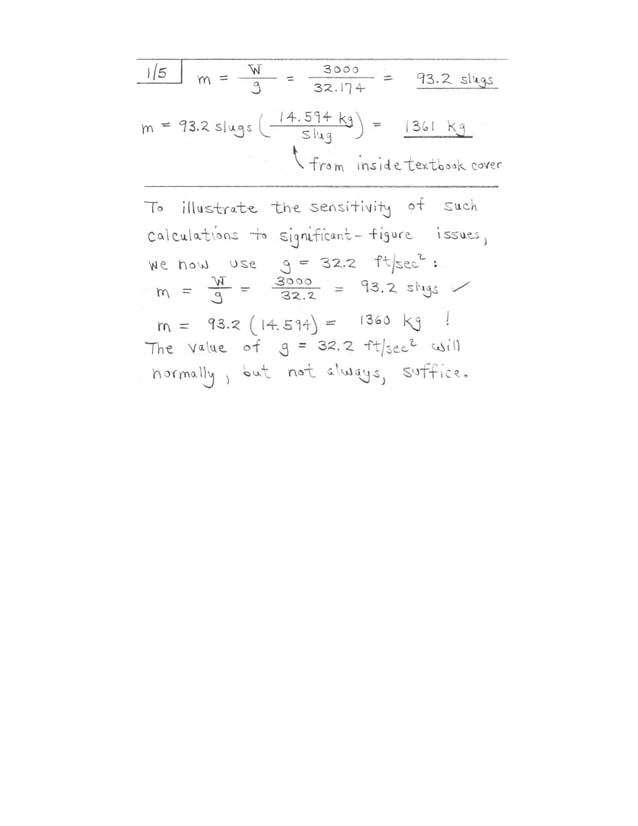 1/5 m = W/g = 3000/32.174 = 93.2 slugs
m = 93.2 slugs (14.594 kg/slug) = 1361 kg
from inside textbook cover
To illustrate the sensitivity of such
calculations to significant-figure issues,
we now use g = 32.2 ft/sec²:
m = W/g = 3000/32.2 = 93.2 slugs ✓
m = 93.2 (14.594) = 1360 kg !
The value of g = 32.2 ft/sec² will
normally, but not always, suffice.